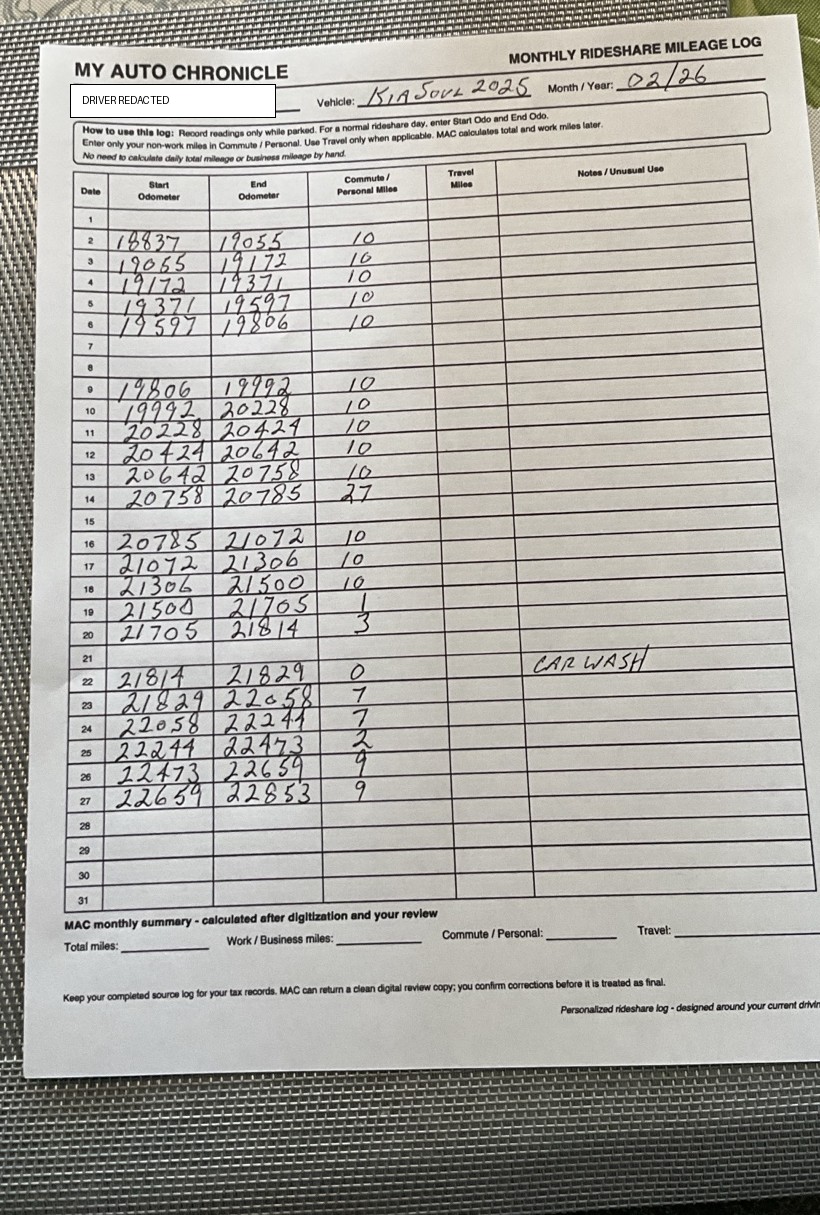 MY AUTO CHRONICLE
MONTHLY RIDESHARE MILEAGE LOG
DRIVER REDACTED
Vehicle: KIA SOUL 2025 Month / Year: 02/26
How to use this log: Record readings only while parked. For a normal rideshare day, enter Start Odo and End Odo.
Enter only your non-work miles in Commute / Personal. Use Travel only when applicable. MAC calculates total and work miles later.
No need to calculate daily total mileage or business mileage by hand.
Date Start Odometer End Odometer Commute / Personal Miles Travel Miles Notes / Unusual Use
1
2 18837 19055 10
3 19055 19172 10
4 19172 19371 10
5 19371 19597 10
6 19597 19806 10
7
8
9 19806 19992 10
10 19992 20228 10
11 20228 20424 10
12 20424 20642 10
13 20642 20758 10
14 20758 20785 27
15
16 20785 21072 10
17 21072 21306 10
18 21306 21500 10
19 21500 21705 1
20 21705 21814 3
21
22 21814 21829 0 CAR WASH
23 21829 22058 7
24 22058 22244 7
25 22244 22473 2
26 22473 22659 9
27 22659 22853 9
28
29
30
31
MAC monthly summary - calculated after digitization and your review
Total miles: Work / Business miles: Commute / Personal: Travel:
Keep your completed source log for your tax records. MAC can return a clean digital review copy; you confirm corrections before it is treated as final.
Personalized rideshare log - designed around your current drivin